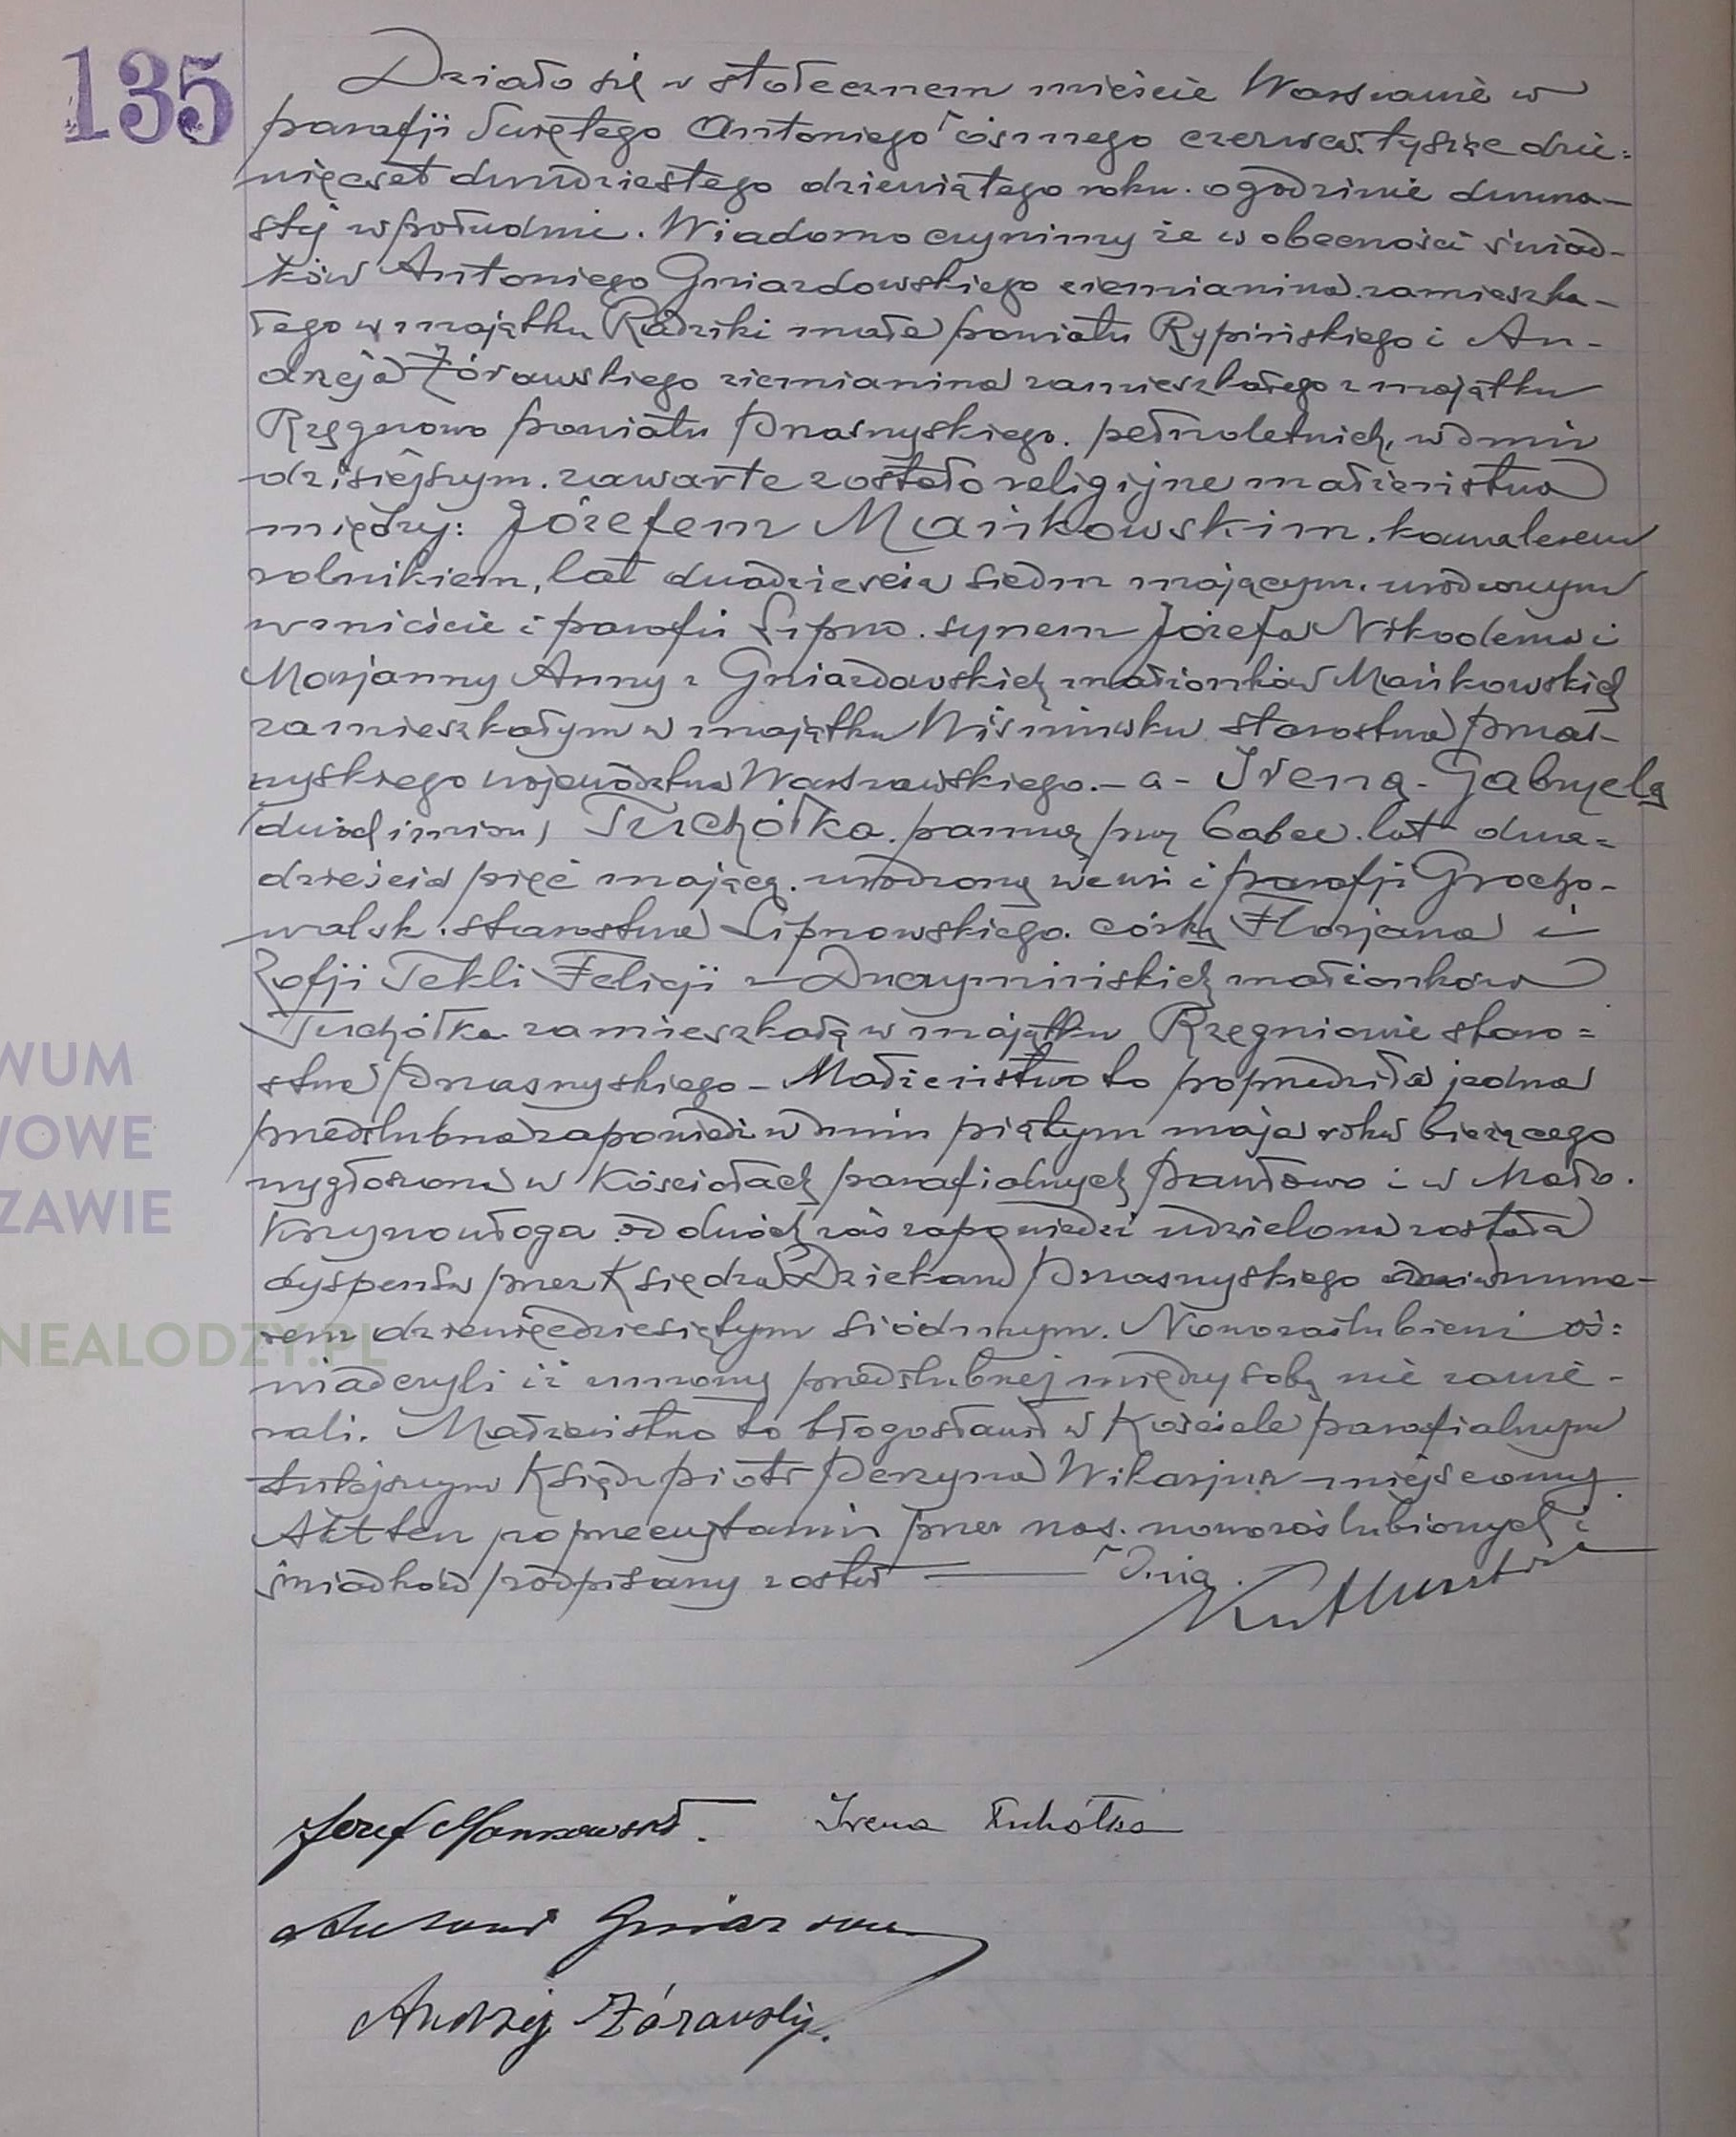 135
Działo się w stołecznem mieście Warszawie w
parafji Świętego Antoniego ósmego czerwca tysiąc dzie=
więćset dwudziestego dziewiątego roku. o godzinie dwuna-
stej w południe. Wiadomo czynimy że w obecności świad-
ków Antoniego Gniazdowskiego ziemianina zamieszka-
łego w majątku Radziki małe powiatu Rypińskiego i An-
drzeja Żórawskiego ziemianina zamieszkałego z majątku
Rzęgnowo powiatu Przasnyskiego. pełnoletnich, w dniu
dzisiejszym. zawarte zostało religijne małżeństwo
między: Józefem Mańkowskim. kawalerem
rolnikiem, lat dwadzieścia siedm mającym. urodzonym
w mieście i parafii Lipno. synem Józefa Nikodema i
Marjanny Anny z Gniazdowskich małżonków Mańkowskich
zamieszkałym w majątku Wiśniewku starostwa Przas-
nyskiego województwa Warszawskiego. - a - Ireną - Gabryelą
(dwóch imion) Tuchółka. panną przy lat dwa=
dzieścia pięć mającą. urodzoną we wsi i parafji Grocho-
walsk. starostwa Lipnowskiego. córką Florjana i
Zofji Tekli Felicji z małżonków
Tuchółka zamieszkałą w majątku Rzęgnowie staro=
stwa Przasnyskiego - Małżeństwo to poprzedziła jedna
przedślubna zapowiedź w dniu piątym maja roku bieżącego
wygłoszona w Kościołach parafialnych Pawłowo i w Mało.
Krzynowłoga od dwóch zaś zapowiedzi udzielona została
dyspensa przez Księdza Dziekana Przasnyskiego nume-
rem dziewięćdziesiątym siódmym. Nowozaślubieni oś=
wiadczyli iż umowy przedślubnej między sobą nie zawie-
rali. Małżeństwo to błogosławił w Kościele parafialnym
tutejszym Ksiądz Piotr Perzyna Wikarjusz miejscowy
Akt ten po przeczytaniu przez nas. nowozaślubionych i
świadków podpisany został
Józef Mańkowski. Irena Tuchółka
Antoni Gniazdow
Andrzej Żórawski.